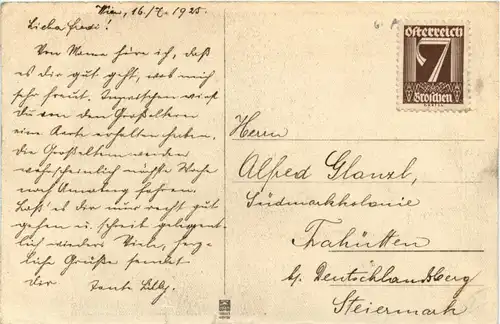 Wien, 16/7. 1925.
Lieber Fredi!
Von Mama höre ich, daß
es dir gut geht, was mich
sehr freut. Inzwischen wirst
Du von den Großeltern
eine Karte erhalten haben,
die Großeltern werden
wahrscheinlich nächste Woche
nach fahren.
Laß' es dir nur recht gut
gehen u. schreib gelegent-
lich wieder. Viele, herz-
liche Grüße sendet
dir Tante Lilly.
Österreich
7
Groschen
Herrn
Alfred Glanzl,
Südmarkkolonie
Trahütten
b/ Deutschlandsberg
Steiermark